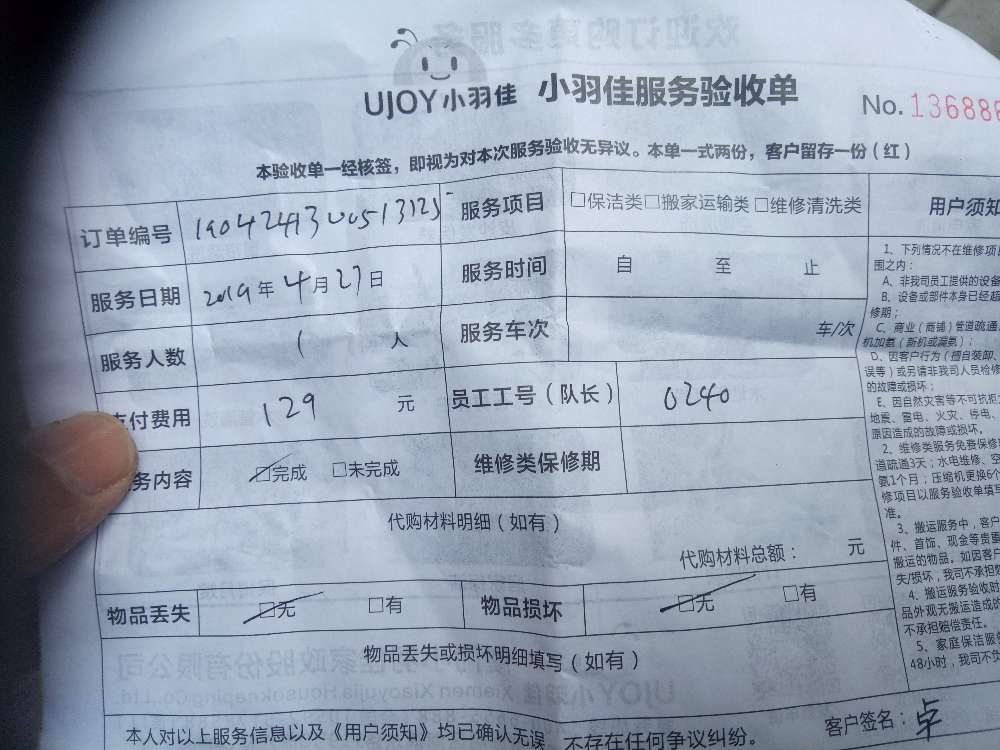 UJOY小羽佳 小羽佳服务验收单 No. 136886
本验收单一经核签，即视为对本次服务验收无异议。本单一式两份，客户留存一份（红）
订单编号 服务项目 □保洁类□搬家运输类□维修清洗类
服务日期 2019年4月27日 服务时间 自 至 止
服务人数 1 人 服务车次 车/次
支付费用 129 元 员工工号（队长） 0240
务内容 □完成 □未完成 维修类保修期
代购材料明细（如有）
代购材料总额： 元
物品丢失 □无 □有 物品损坏 □无 □有
物品丢失或损坏明细填写（如有）
本人对以上服务信息以及《用户须知》均已确认无误 不存在任何争议纠纷。
客户签名：卓
用户须知
1、下列情况不在维修项
围之内：
A、非我司员工提供的设备
B、设备或部件本身已经超
修期；
C、商业（商铺）管道疏通
机加氨（新机或漏氨）；
D、因客户行为（擅自装卸、
误等）或另请非我司人员检修
的故障或损坏；
E、因自然灾害等不可抗拒
地震、雷电、火灾、停电、
原因造成的故障或损坏。
2、维修类服务免费保修
道疏通3天；水电维修、空
氨1个月；压缩机更换6个
修项目以服务验收单填写
准。
3、搬运服务中，客户
件、首饰、现金等贵重
搬运的物品。如因客户
失/损坏，我司不承担
4、搬运服务验收时
品外观无搬运造成的
不承担赔偿责任。
5、家庭保洁服
48小时，我司不负